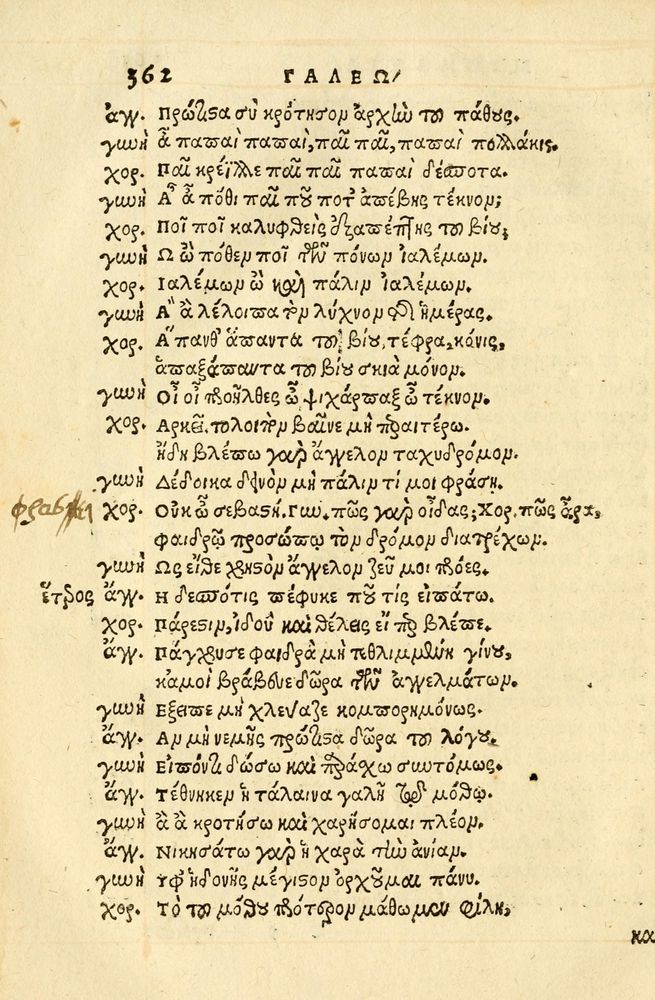 362 ΓΑΛΕΩ
ἀγγ. Πρώτιστα σὺ κρότησον ἀρχὴν τοῦ πάθους.
γυνὴ ἆ παπαὶ παπαὶ, παῖ παῖ, παπαὶ πολλάκις.
χορ. Παῖ κρέϊλλε παῖ παῖ παπαὶ δέσποτα.
γυνὴ Ἆ ἆ πόθι παῖ ποῦ ποτ' ἀπέβης τέκνον;
χορ. Ποῖ ποῖ καλυφθεὶς ἐξαπέπτης τοῦ βίου;
γυνὴ Ὢ ὢ πόθεν ποῖ τῶν πόνων ἰαλέμων.
χορ. Ἰαλέμων ὢ καὶ πάλιν ἰαλέμων.
γυνὴ Ἂ ἂ λέλοιπα τὸν λύχνον τῆς ἡμέρας.
χορ. Ἅπανθ' ἅπαντα τοῦ βίου, τέφρα, κόνις,
ἁπαξάπαντα τοῦ βίου σκιὰ μόνον.
γυνὴ Οἶ οἶ ποῦ ἦλθες ὦ ψιχάρπαξ ὦ τέκνον.
χορ. Ἀρκεῖ. τὸ λοιπὸν βαῖνε μὴ περαιτέρω.
ἤδη βλέπω γὰρ ἄγγελον ταχυδρόμον.
γυνὴ Δέδοικα δεινὸν μὴ πάλιν τί μοι φράσῃ.
χορ. Οὐκ ὦ σεβαστή. Γυν. πῶς γὰρ οἶδας; Χορ. πῶς ἄρα,
φαιδρῷ προσώπῳ τὸν δρόμον διατρέχων.
γυνὴ Ὡς εἴθε χρηστὸν ἄγγελον ζεῦ μοι πόρες.
ἕτερος ἄγγ. Ἡ δεσπότις πέφυκε ποῦ τίς εἰπάτω.
χορ. Πάρεστιν, ἰδοὺ καὶ θέλεις εἴπερ βλέπε.
ἄγγ. Πάγχρυσε φαιδρὰ μὴ τεθλιμμένη γίνου,
κἀμοὶ βράβευε δῶρα τῶν ἀγγελμάτων.
γυνὴ Ἔξειπε μὴ χλεύαζε κομπορρημόνως.
ἄγγ. Ἂν μὴ νέμῃς πρώτιστα δῶρα τοῦ λόγου.
γυνὴ Εἰπόντι δώσω καὶ παράσχω συντόμως.
ἄγγ. Τέθνηκεν ἡ τάλαινα γαλῆ τῷ μόθῳ.
γυνὴ ἂ ἂ κροτήσω καὶ χαρήσομαι πλέον.
ἄγγ. Νικησάτω γὰρ ἡ χαρὰ τὴν ἀνίαν.
γυνὴ Ὑφ' ἡδονῆς μέγιστον ὀρχοῦμαι πάνυ.
χορ. Τὸ τοῦ μόθου πότερον μάθωμεν φίλη,
κα